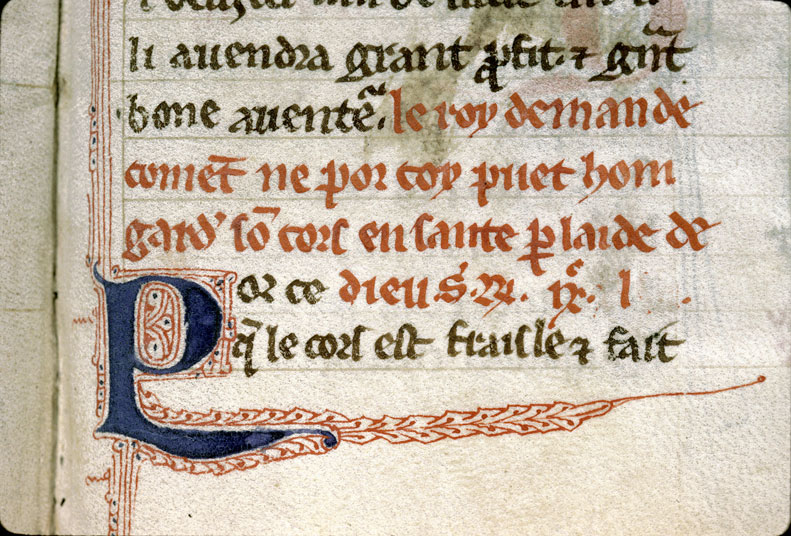 li auendra grant ꝓfit. ⁊ gñt
bone auentᵉ. le roy demande
comet̄ ne por coy puet hom
gard' sō cors en sante ꝑ laide de
Por ce dieu. S. M. ix. l .
q̄ le cors est fraisle ⁊ fait